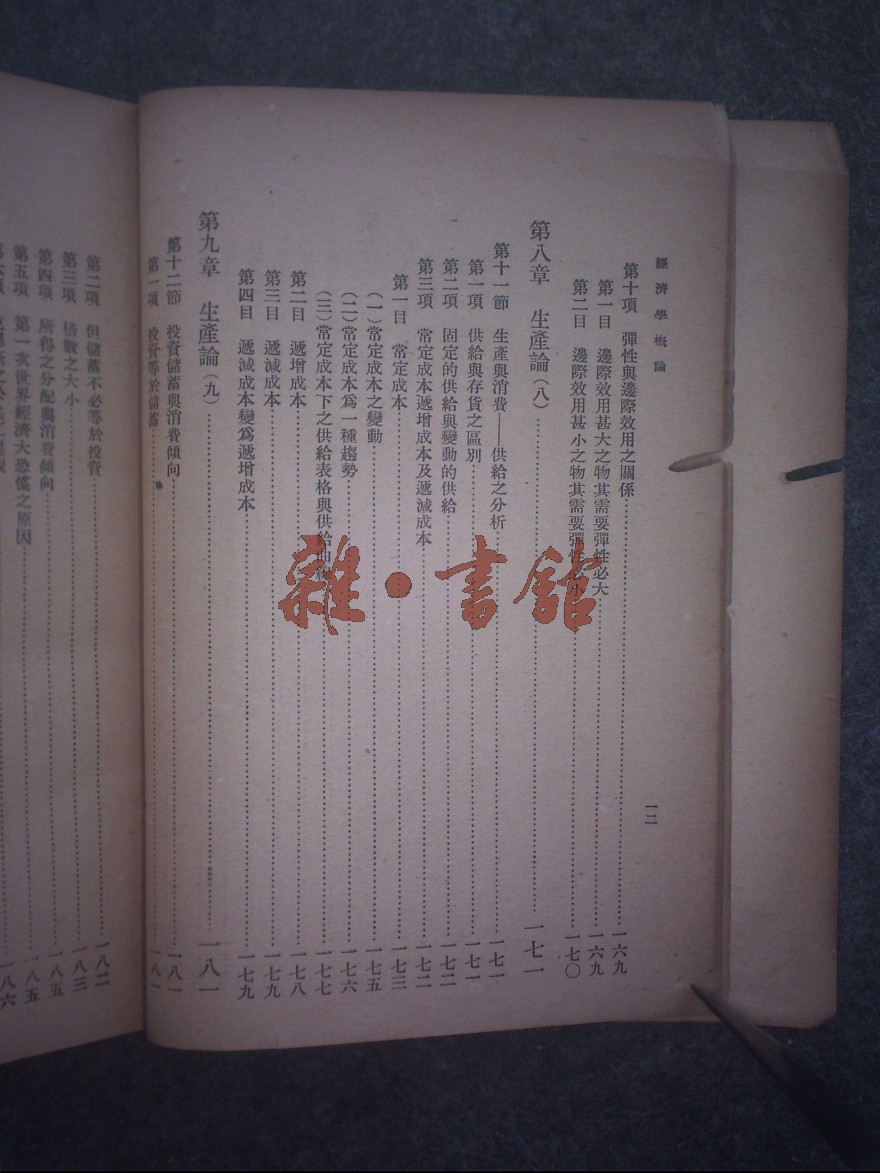 經濟學概論
一二
第十項 彈性與邊際效用之關係……一六九
第一目 邊際效用甚大之物其需要彈性必大……一六九
第二目 邊際效用甚小之物其需要彈性必小……一七〇
第八章 生產論(八)……一七一
第十一節 生產與消費——供給之分析……一七一
第一項 供給與存貨之區別……一七一
第二項 固定的供給與變動的供給……一七二
第三項 常定成本遞增成本及遞減成本……一七二
第一目 常定成本……一七三
(一)常定成本之變動……一七五
(二)常定成本爲一種趨勢……一七六
(三)常定成本下之供給表格與供給曲線……一七七
第二目 遞增成本……一七八
第三目 遞減成本……一七九
第四目 遞減成本變爲遞增成本……一七九
第九章 生產論(九)……一八一
第十二節 投資儲蓄與消費傾向……一八一
第一項 投資等於儲蓄……一八一
第二項 但儲蓄不必等於投資……一八二
第三項 倍數之大小……一八三
第四項 所得之分配與消費傾向……一八五
第五項 第一次世界經濟大恐慌之原因……一八五
一八六
雜·書館